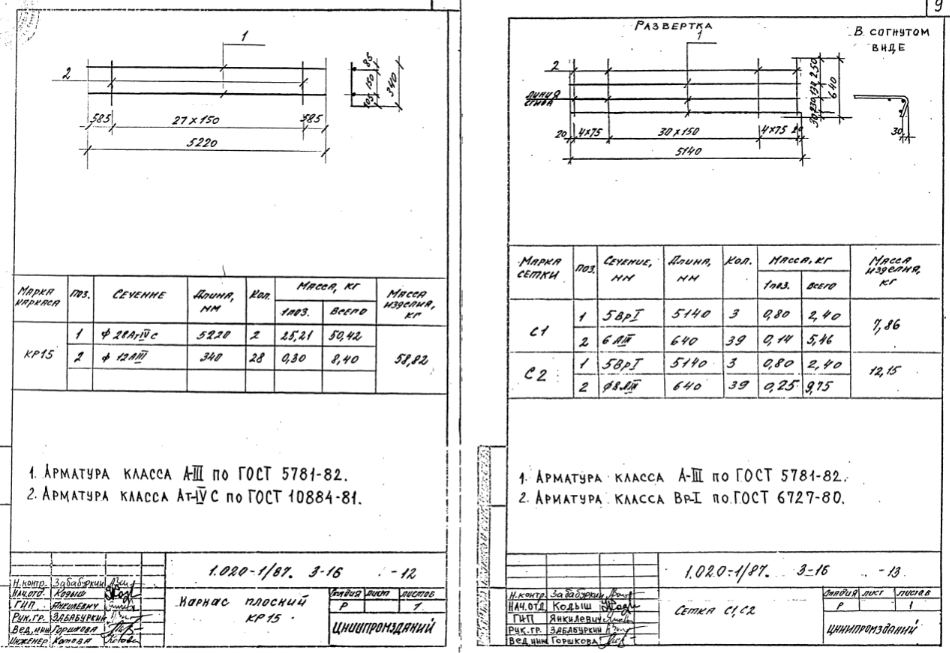 1
2
85
120
105
340
585
27×150
585
5220
МАРКА КАРКАСА
ПОЗ.
СЕЧЕНИЕ
ДЛИНА, ММ
КОЛ.
МАССА, КГ
1ПОЗ.
ВСЕГО
МАССА ИЗДЕЛИЯ, КГ
КР15
1 ϕ 28АтIVС 5220 2 25,21 50,42
2 ϕ 12АIII 340 28 0,30 8,40
58,82
1. АРМАТУРА КЛАССА А-III ПО ГОСТ 5781-82.
2. АРМАТУРА КЛАССА Ат-IVС ПО ГОСТ 10884-81.
1.020-1/87. 3-16 -12
Н.контр. Забабуркин
НАЧ.ОТД. КОДЫШ
ГИП ЯНКИЛЕВИЧ
РУК.ГР. ЗАБАБУРКИН
ВЕД.ИНЖ ГОРШКОВА
ИНЖЕНЕР
КАРКАС ПЛОСКИЙ
КР15
СТАДИЯ ЛИСТ ЛИСТОВ
Р 1
ЦНИИПРОМЗДАНИЙ
9
РАЗВЕРТКА
В СОГНУТОМ
ВИДЕ
1
2
ЛИНИЯ
СГИБА
250
640
30
20 4×75 30×150 4×75 20
5140
30
МАРКА СЕТКИ
ПОЗ.
СЕЧЕНИЕ, ММ
ДЛИНА, ММ
КОЛ.
МАССА, КГ
1ПОЗ.
ВСЕГО
МАССА ИЗДЕЛИЯ, КГ
С1
1 5ВрI 5140 3 0,80 2,40
2 6АIII 640 39 0,14 5,46
7,86
С2
1 5ВрI 5140 3 0,80 2,40
2 ϕ8АIII 640 39 0,25 9,75
12,15
1. АРМАТУРА КЛАССА А-III ПО ГОСТ 5781-82.
2. АРМАТУРА КЛАССА Вр-I ПО ГОСТ 6727-80.
1.020-1/87. 3-16 -13
Н.КОНТР. ЗАБАБУРКИН
НАЧ.ОТД. КОДЫШ
ГИП ЯНКИЛЕВИЧ
РУК.ГР. ЗАБАБУРКИН
ВЕД.ИНЖ ГОРШКОВА
СЕТКА С1,С2
СТАДИЯ ЛИСТ ЛИСТОВ
Р 1
ЦНИИПРОМЗДАНИЙ